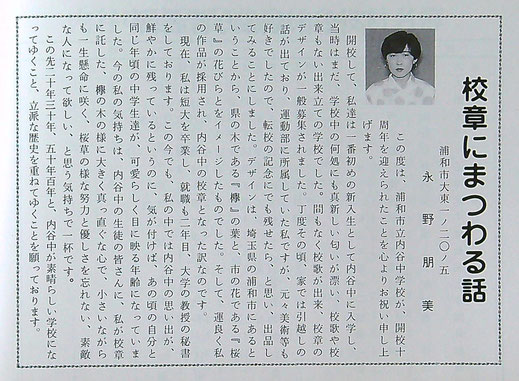 校章にまつわる話
浦和市大東一ノ二〇ノ五
永野朋美
この度は、浦和市立内谷中学校が、開校十
周年を迎えられたことを心よりお祝い申し上
げます。
開校して、私達は一番初めの新入生として内谷中に入学し、
当時はまだ、学校中の何処にも真新しい匂いが漂い、校歌や校
章もない出来立ての学校でした。間もなく校歌が出来、校章の
デザインが一般募集されました。丁度その頃、家では引越しの
話が出ており、運動部に所属していた私ですが、元々美術等も
好きでしたので、転校の記念にでも残せたら、と思い、出品し
てみることにしました。デザインは、埼玉県の浦和市にあると
いうことから、県の木である『欅』の葉と、市の花である『桜
草』の花びらとをイメージしたものでした。そして、運良く私
の作品が採用され、内谷中の校章となった訳なのです。
現在、私は短大を卒業し、就職も二年目、大学の教授の秘書
をしております。この今でも、私の中では内谷中の思い出が、
鮮やかに残っているというのに、気が付けば、あの頃の自分と
同じ年頃の中学生達が、可愛らしく目に映る年齢になっていま
した。今の私の気持ちは、内谷中の生徒の皆さんに、私が校章
に託した、欅の木の様に大きく真っ直ぐな心で、小さいながら
も一生懸命に咲く、桜草の様な努力と優しさを忘れない、素敵
な人になって欲しい、と思う気持ちで一杯です。
この先二十年三十年、五十年百年と、内谷中が素晴らしい学校にな
ってゆくこと、立派な歴史を重ねてゆくことを願っております。